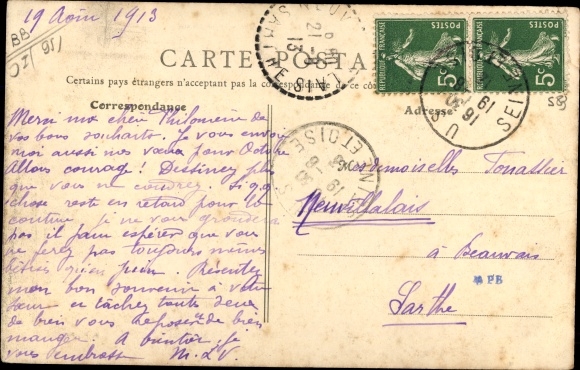 19 Août 1913
BB
CARTE POSTALE
Certains pays étrangers n'acceptent pas la correspondance de ce côté
Correspondance
Adresse
RÉPUBLIQUE FRANÇAISE
5c
RÉPUBLIQUE FRANÇAISE
5c
21 -8
13
SARTHE
SEINE
19
Merci ma chère Philomène de
vos bons souhaits. Je vous envoie
moi aussi nos vœux pour Octobre
Allons courage! Dessinez plus
que vous ne coudrez. Si q.q.
chose reste en retard pour la
couture je ne vous gronderai
pas il faut espérer que vous
ne ferez pas toujours
Présentez
mon bon souvenir à votre
sœur et tâchez toutes deux
de bien vous reposer de bien
manger. A bientôt je
vous embrasse M.L.V.
Mesdemoiselles Tonassier
Neuvillalais
à Beauvais
Sarthe
PB